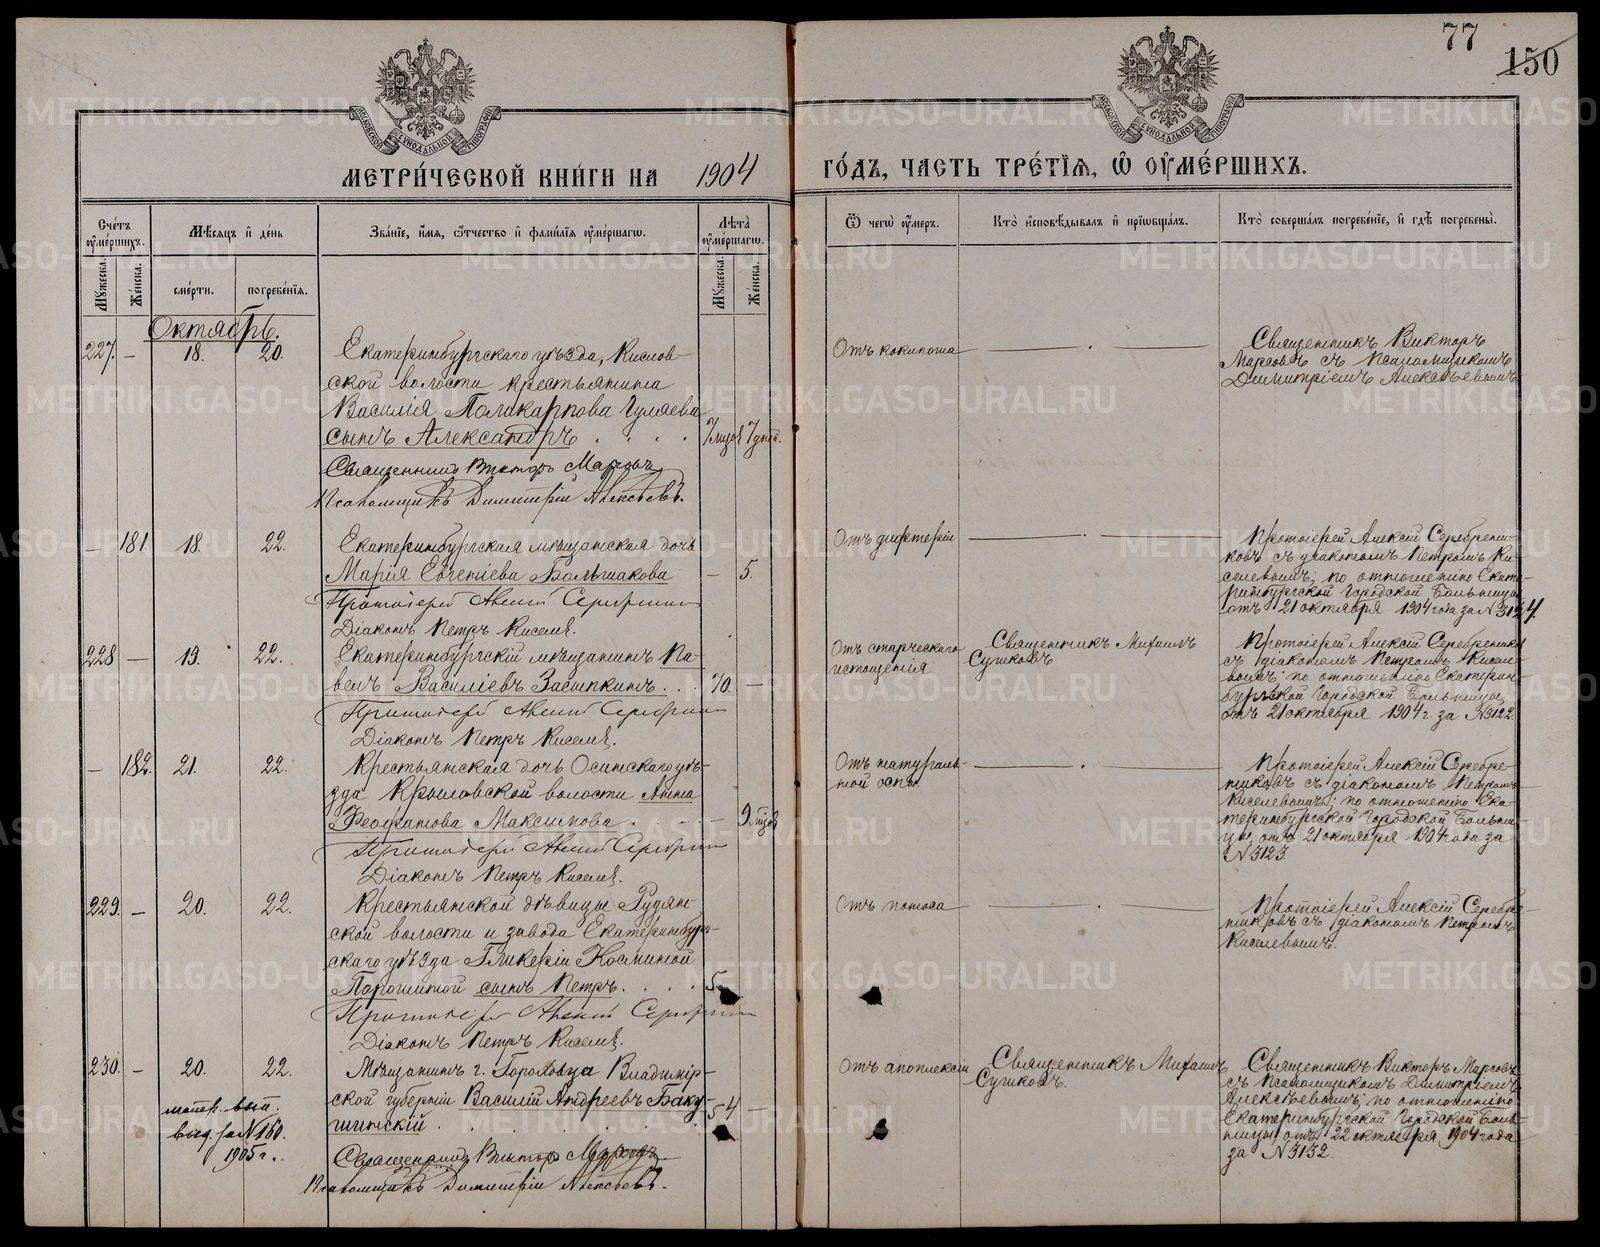 77
150
МЕТРИ́ЧЕСКОЙ КНИ́ГИ НА 1904 ГО́ДЪ, ЧАСТЬ ТРЕ́ТЇѦ, Ѡ ОУМЕ́РШИХЪ.
Сче́тъ оуме́ршихъ.
Мꙋжеска.
Же́нска.
Мѣсѧцъ и де́нь
сме́рти.
погребе́нїѧ.
Зва́нїе, и́мѧ, ѻ́тчество и фами́лїѧ оуме́ршагѡ.
Лѣ́та оуме́ршагѡ.
Мꙋжеска.
Же́нска.
Ѿ чегѡ̀ оу́меръ.
Кто̀ исповѣ́дывалъ и прїѡбща́лъ.
Кто̀ соверша́лъ погребе́нїе, и гдѣ̀ погребены̀.
Октябрь.
227. – 18. 20.
Екатеринбургскаго уѣзда, Кислов-
ской волости крестьянина
Василія Поликарпова Гуляева
сынъ Александръ . . . .
Священникъ Викторъ Марсовъ
Псаломщикъ Димитрій Алексѣевъ.
Отъ коклюша
Священникъ Викторъ
Марсовъ съ псаломщикомъ
Димитріемъ Алексѣевымъ
– 181. 18. 22.
Екатеринбургская мѣщанская дочь
Марія Евгеніева Большакова – 5.
Протоіерей Алексій Серебренниковъ
Діаконъ Петръ Киселевъ.
Отъ дифтеріи
Протоіерей Алексій Серебрени-
ковъ съ діакономъ Петромъ Ки-
селевымъ; по отношенію Екате-
ринбургской Городской Больницы
отъ 21 октября 1904 года за № 3124.
228 – 19. 22.
Екатеринбургскій мѣщанинъ Па-
велъ Василіевъ Засыпкинъ . . . 70. –
Протоіерей Алексій Серебренниковъ
Діаконъ Петръ Киселевъ.
Отъ старческаго
истощенія
Священникъ Михаилъ
Сушковъ
Протоіерей Алексій Серебрениковъ
съ діакономъ Петромъ Кисе-
левымъ; по отношенію Екатерин-
бургской Городской Больницы
отъ 21 октября 1904 г. за № 3122.
– 182. 21. 22.
Крестьянская дочь Осинскаго уѣ-
зда Крыловской волости Анна
Феофанова Максимова . . . – 9 мѣсяц.
Протоіерей Алексій Серебренниковъ
Діаконъ Петръ Киселевъ.
Отъ натураль-
ной оспы
Протоіерей Алексій Серебре-
никовъ съ діакономъ Петромъ
Киселевымъ; по отношенію Ека-
теринбургской Городской Больни-
цы, отъ 21 октября 1904 года за
№ 3123.
229. – 20. 22.
Крестьянской дѣвицы Рудян-
ской волости и завода Екатеринбург-
скаго уѣзда Гликеріи Косминой
Порошиной сынъ Петръ . . . . 5
Протоіерей Алексій Серебренниковъ
Діаконъ Петръ Киселевъ.
Отъ поноса
Протоіерей Алексій Серебре-
никовъ съ діакономъ Петромъ
Киселевымъ.
230. – 20. 22.
Мѣщанинъ г. Гороховца Владимір-
ской губерніи Василій Андреевъ Баку-
шинскій . . . 54 –
Священникъ Викторъ Марсовъ
Псаломщикъ Димитрій Алексѣевъ.
метр. вып.
выд. за № 160.
1905 г.
Отъ апоплексіи
Священникъ Михаилъ
Сушковъ.
Священникъ Викторъ Марсовъ
съ псаломщикомъ Димитріемъ
Алексѣевымъ; по отношенію
Екатеринбургской Городской Боль-
ницы отъ 22 октября 1904 года
за № 3132.